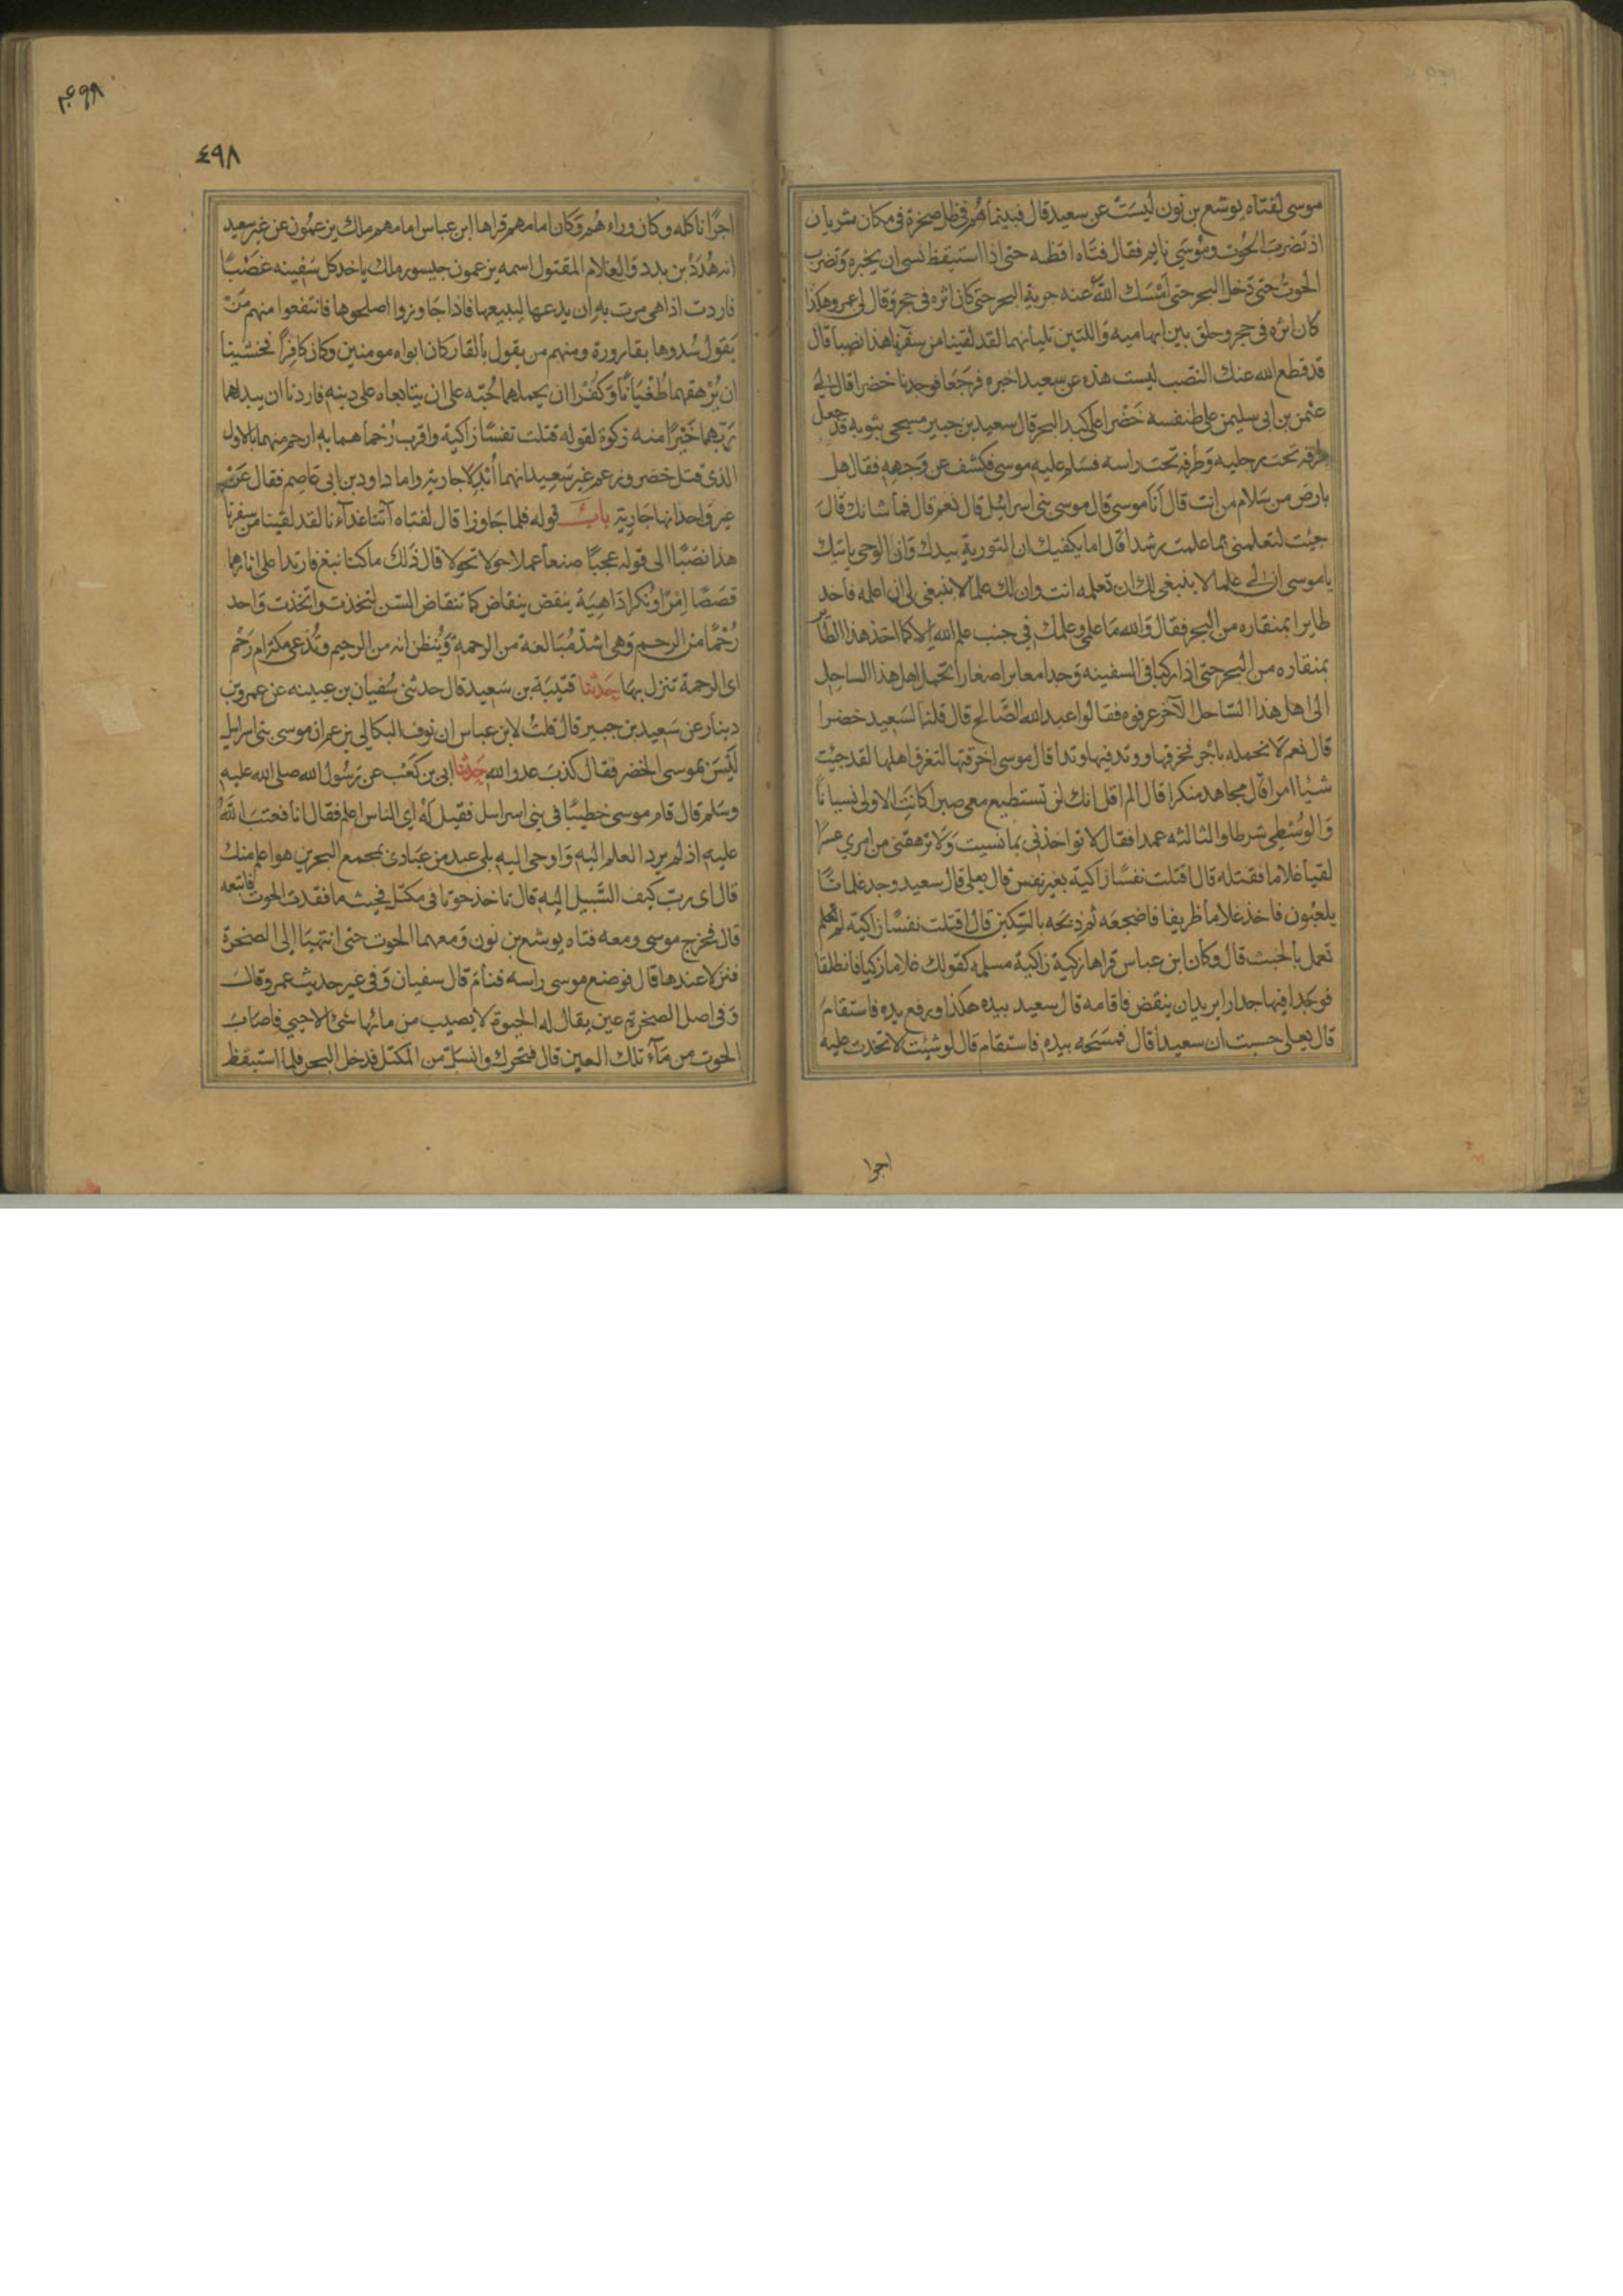 موسى لفتاه يوشع بن نون ليست عن سعيد قال فبينما هم فى ظل صخرة فى مكان ثريان
اذ تضرب الحوت وموسى نايم فقال فتاه اقظه حتى اذا استيقظ نسى ان يخبره وتضرب
الحوت حتى دخل البحر حتى امسك الله عنه جرية البحر حتى كان اثره فى حجر وقال لى عمرو هكذا
كان اثره فى حجر وحلق بين ابهاميه واللتين تليانهما لقد لقينا من سفرنا هذا نصبا قال
قد قطع الله عنك النصب ليست هذه عن سعيد اخبره فرجعا فوجدنا خضرا قال لى
عثمن بن ابى سليمن على طنفسه خضرا على كبد البحر قال سعيد بن جبير مسجى بثوبه قد جعل
طرفه تحت رجليه وطرفه تحت راسه فسلم عليه موسى فكشف عن وجهه فقال هل
بارض من سلام من انت قال انا موسى قال موسى بنى اسرائيل قال نعم قال فما شانك قال
جيئت لتعلمنى مما علمت رشدا قال اما يكفيك ان التورية بيدك وان الوحى ياتيك
ياموسى ان لى علما لا ينبغى لك ان تعلمه انت وان لك علما لا ينبغى لى ان اعلمه فاخد
طايرا بمنقاره من البحر فقال والله ما علمى وعلمك فى جنب علم الله الا كما اخذ هذا الطاير
بمنقاره من البحر حتى اذا ركبا فى السفينه وجدا معابر صغارا تحمل اهل هذا الساحل
الى اهل هذا الساحل الآخر عرفوه فقالوا عبد الله الصالح قال قلنا لسعيد خضرا
قال نعم لا نحمله باجر فخرقها ووتد فيها وتدا قال موسى اخرقتها لتغرق اهلها لقد جيئت
شيئا امرا قال مجاهد منكرا قال الم اقل انك لن تستطيع معى صبرا كانت الاولى نسيانا
والوسطى شرطا والثالثه عمدا فقال لا تواخذنى بما نسيت ولا ترهقنى من امري عسرا
لقيا غلاما فقتله قال اقتلت نفسا زاكية بغير نفس قال يعلى قال سعيد وجد غلمانا
يلعبون فاخذ غلاما ظريفا فاضجعه ثم ذبحه بالسكين قال اقتلت نفسا زاكية لم تحلم
تعمل بالخبث قال وكان ابن عباس قراها زكية زاكية مسلمه كقولك غلاما زكيا فانطلقا
فوجدا فيها جدارا يريد ان ينقض فاقامه قال سعيد بيده هكذا ورفع يده فاستقام
قال يعلى حسبت ان سعيدا قال فمسحه بيده فاستقام قال لو شيئت لاتخذت عليه
اجرا
٤٩٨
٤٩٨
اجرا ناكله وكان وراءهم وكان امامهم قراها ابن عباس امامهم ملك يزعمون عن غير سعيد
انه هدد بن بدد والغلام المقتول اسمه يزعمون جيسور ملك ياخد كل سفينه غصبا
فاردت اذا هى مرت به ان يدعها ليبيعها فاذا جاوزوا اصلحوها فانتفعوا منهم من
يقول سدوها بقارورة ومنهم من يقول بالقار كان ابواه مومنين وكان كافرا فخشينا
ان يرهقهما طغيانا وكفرا ان يحملهما حبه على ان يتابعاه على دينه فاردنا ان يبدلهما
ربهما خيرا منه زكوة لقوله قتلت نفسا زاكية واقرب رحما هما به ارحم منهما بالاول
الذى قتل خضر وزعم غير سعيد انهما ابدلا جارية واما داود بن ابى عاصم فقال عن
غير واحد انها جارية باب قوله فلما جاوزا قال لفتاه آتنا غدآءنا لقد لقينا من سفرنا
هذا نصبا الى قوله عجبا صنعا عملا حولا تحولا قال ذلك ما كنا نبغ فارتدا على اثارهما
قصصا امرا ونكرا داهية ينقض ينقاض كما تنقاض السن لتخذت واتخذت واحد
رحما من الرحم وهى اشد مبالغة من الرحمة ويظن انه من الرحيم وتدعى مكة ام رحم
اى الرحمة تنزل بها حدثنا قتيبة بن سعيد قال حدثنى سفيان بن عيينه عن عمرو بن
دينار عن سعيد بن جبير قال قلت لابن عباس ان نوف البكالى يزعم ان موسى بنى اسرايل
ليس بموسى الخضر فقال كذب عدو الله حدثنا ابى بن كعب عن رسول الله صلى الله عليه
وسلم قال قام موسى خطيبا فى بنى اسراسل فقيل له اى الناس اعلم فقال انا فعتب الله
عليه اذ لم يرد العلم اليه واوحى اليه بلى عبد من عبادى بمجمع البحرين هو اعلم منك
قال اى رب كيف السبيل اليه قال تاخذ حوتا فى مكتل فحيث ما فقدت الحوت فاتبعه
قال فخرج موسى ومعه فتاه يوشع بن نون ومعهما الحوت حتى انتهيا الى الصخرة
فنزلا عندها قال فوضع موسى راسه فنام قال سفيان وفى غير حديث عمرو قال
وفى اصل الصخرة عين يقال له الحيوة لا يصيب من مائها شئ الا حيى فاصاب
الحوت من مآء تلك العين قال فتحرك وانسل من المكتل فدخل البحر فلما استيقظ